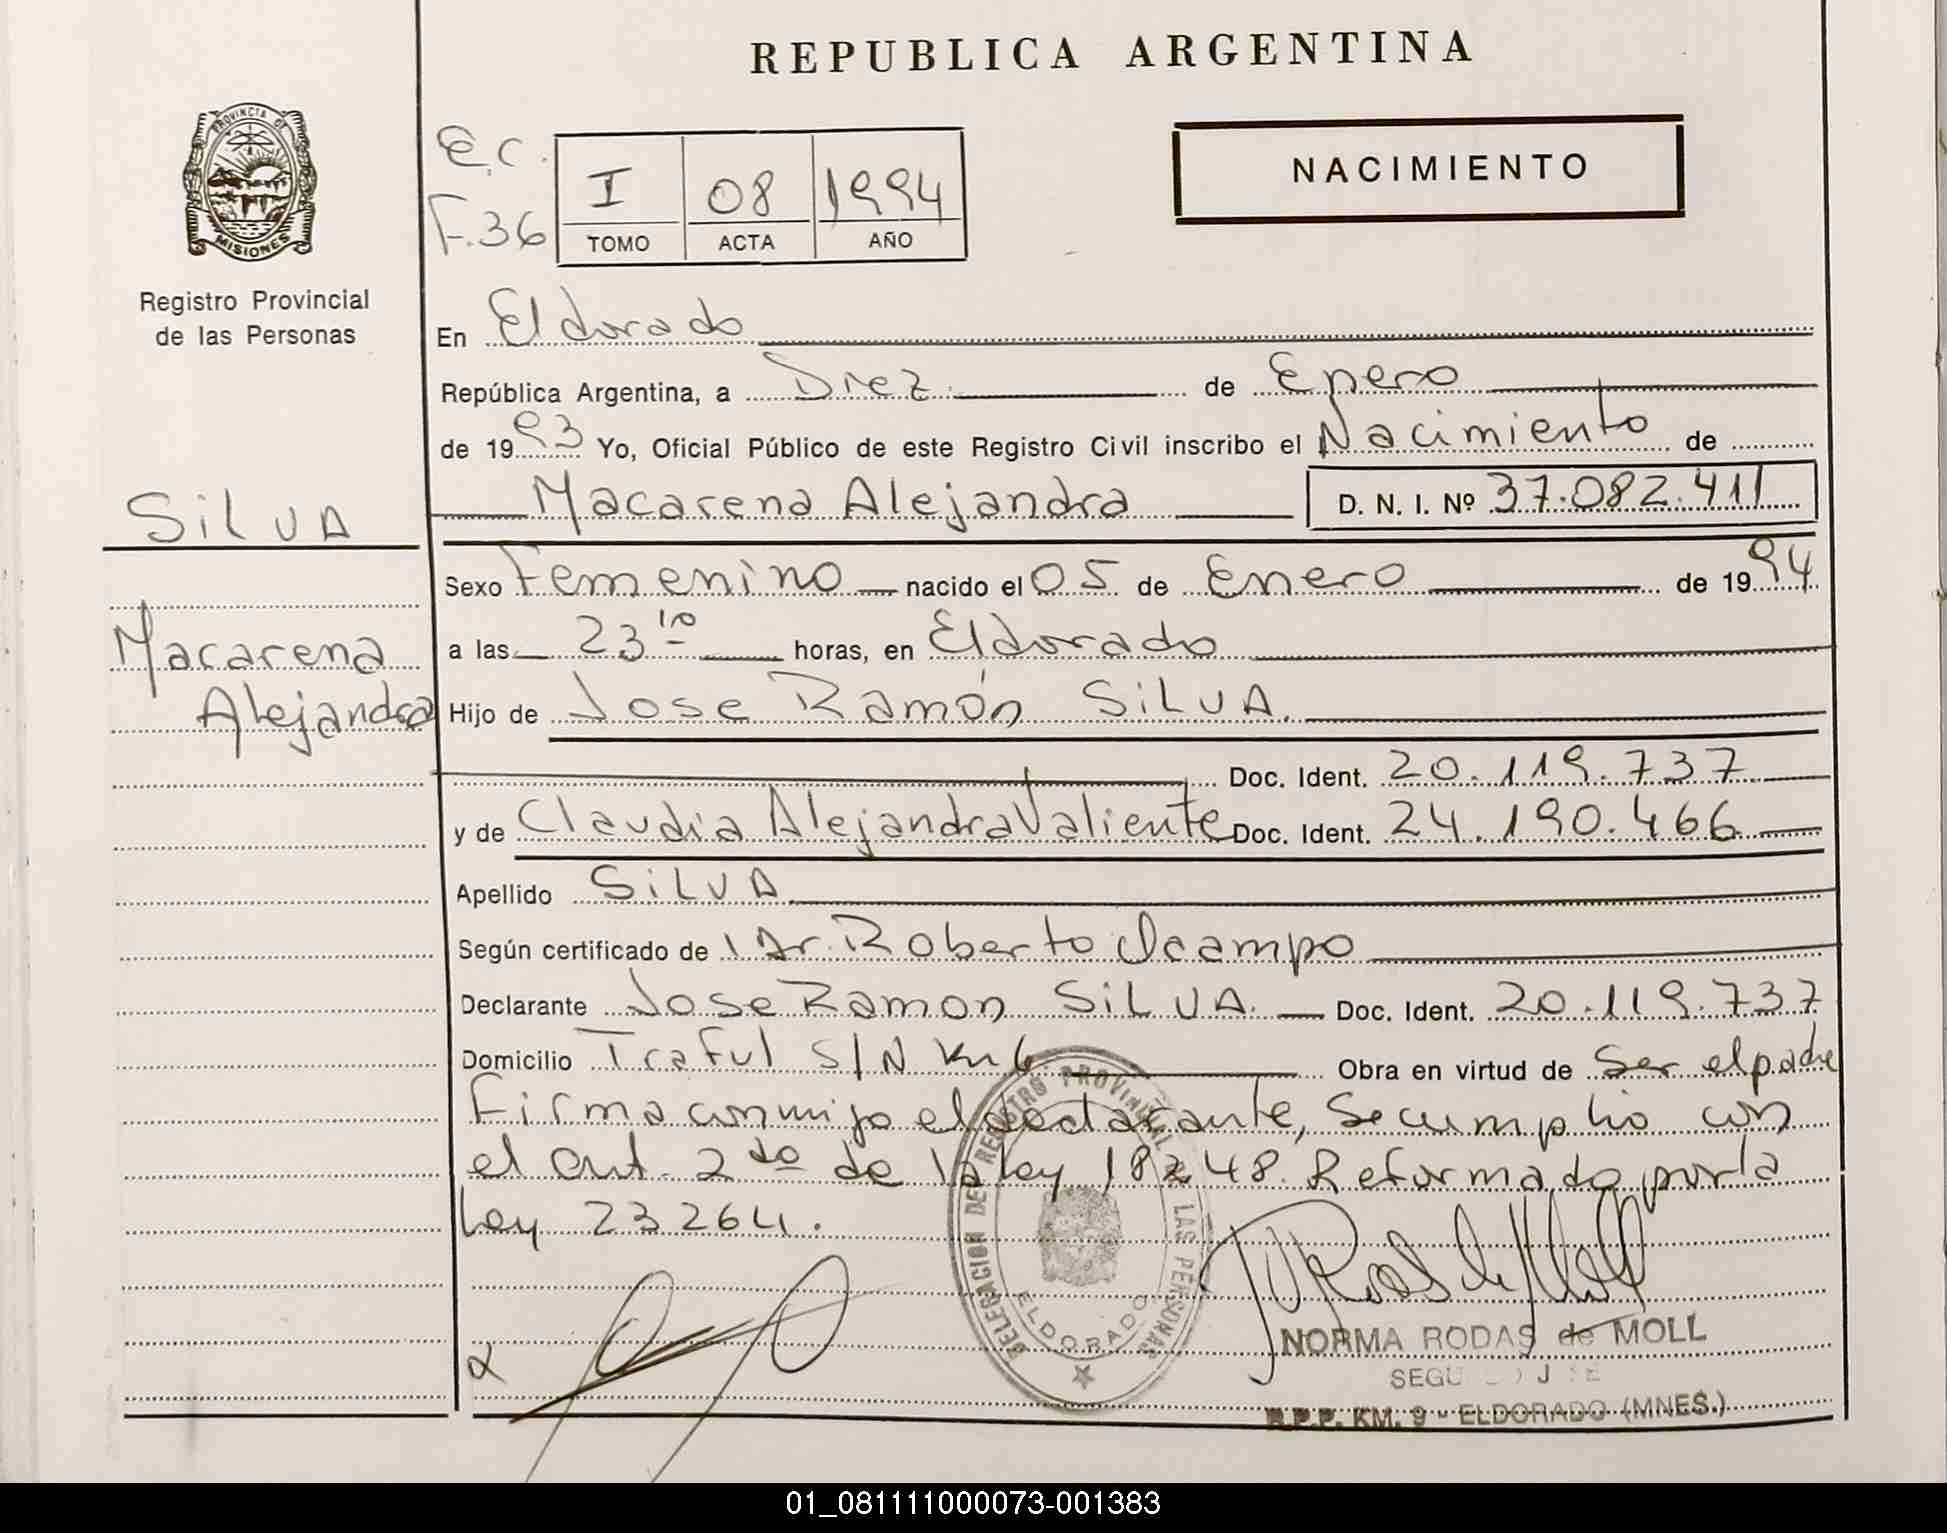 REPUBLICA ARGENTINA
PROVINCIA DE
MISIONES
Registro Provincial
de las Personas
E.C.
F.36
I 08 1994
TOMO ACTA AÑO
NACIMIENTO
En Eldorado
República Argentina, a Diez de Enero
de 1993 Yo, Oficial Público de este Registro Civil inscribo el Nacimiento de
Macarena Alejandra D. N. I. Nº 37.082.411
SILVA
Macarena
Alejandra
Sexo Femenino nacido el 05 de Enero de 1994
a las 23 10 horas, en Eldorado
Hijo de Jose Ramón SILVA.
Doc. Ident. 20.119.737
y de Claudia Alejandra Valiente Doc. Ident. 24.190.466
Apellido SILVA
Según certificado de Dr. Roberto Ocampo
Declarante Jose Ramon SILVA. Doc. Ident. 20.119.737
Domicilio Traful S/N Km 6 Obra en virtud de Ser el padre
Firma conmigo el declarante, Se cumplio con
el art. 2do de la ley 18248. Reformado por la
Ley 23264.
DELEGACION DEL REGISTRO PROVINCIAL DE LAS PERSONAS
ELDORADO
NORMA RODAS de MOLL
R.P.P. KM. 9 - ELDORADO (MNES.)
01_081111000073-001383